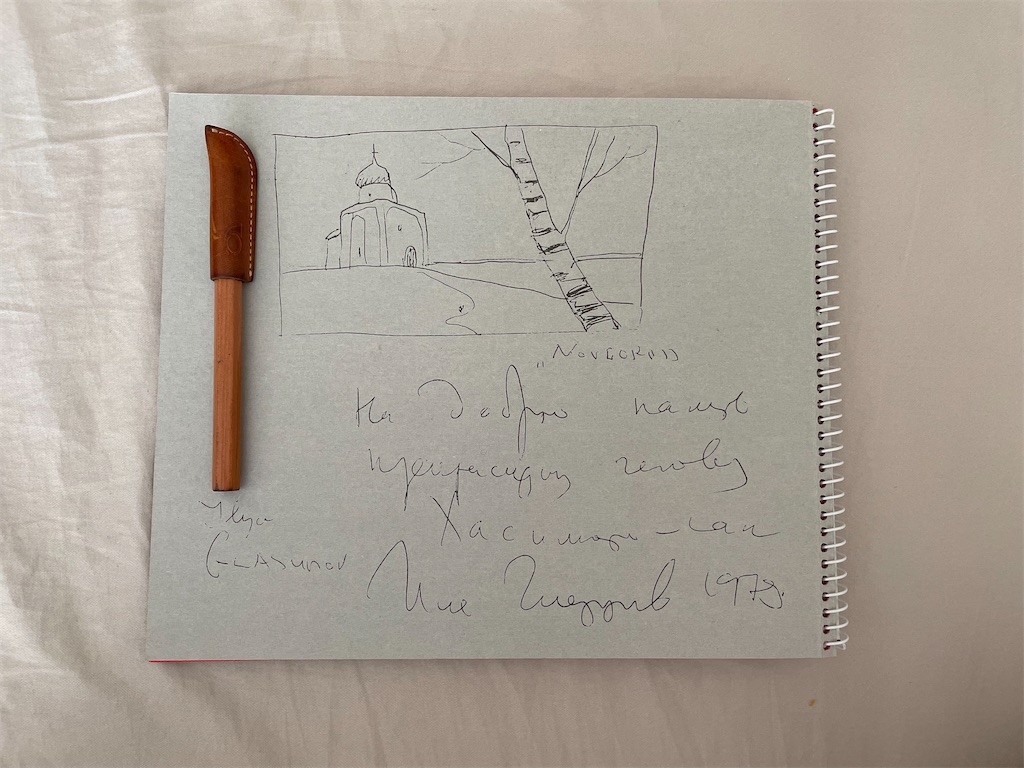 „NOVGOROD
На добрую память
прекрасному человеку
Хасимото-сан
Ilya
GLASUNOV
Илья Глазунов 1979.